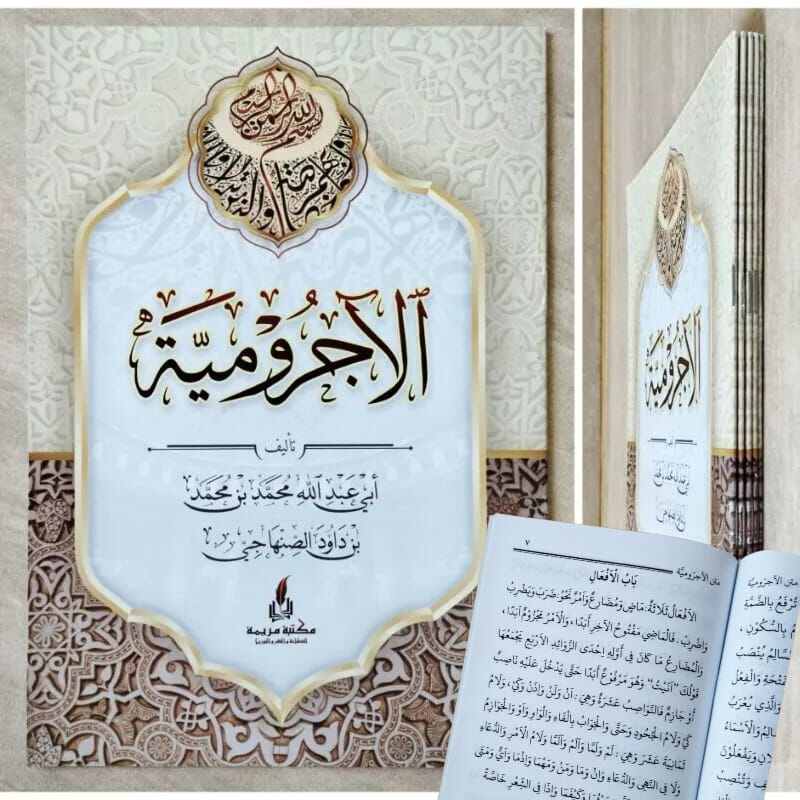 بسم الله الرحمن الرحيم
الآجُرُّومِيَّة
تأليف
أَبِي عَبْدِ اللهِ مُحَمَّد بْنِ مُحَمَّد
بْنِ دَاوُدَ الصِّنْهَاجِيِّ
مكتبة مريمة
للطباعة والنشر والتوزيع
الآجُرُّومِيَّة
متن الآجرومية
٧
بَابُ الْأَفْعَالِ
الْأَفْعَالُ ثَلَاثَةٌ: مَاضٍ وَمُضَارِعٌ وَأَمْرٌ نَحْوُ: ضَرَبَ وَيَضْرِبُ
وَاضْرِبْ. فَالْمَاضِي مَفْتُوحُ الْآخِرِ أَبَدًا، وَالْأَمْرُ مَجْزُومٌ أَبَدًا،
وَالْمُضَارِعُ مَا كَانَ فِي أَوَّلِهِ إِحْدَى الزَّوَائِدِ الْأَرْبَعِ يَجْمَعُهَا
قَوْلُكَ "أَنَيْتُ" وَهُوَ مَرْفُوعٌ أَبَدًا حَتَّى يَدْخُلَ عَلَيْهِ نَاصِبٌ
أَوْ جَازِمٌ فَالنَّوَاصِبُ عَشَرَةٌ وَهِيَ: أَنْ وَلَنْ وَإِذَنْ وَكَيْ، وَلَامُ
كَيْ وَلَامُ الْجُحُودِ وَحَتَّى وَالْجَوَابُ بِالْفَاءِ وَالْوَاوِ وَأَوْ وَالْجَوَازِمُ
ثَمَانِيَةَ عَشَرَ وَهِيَ: لَمْ وَلَمَّا وَأَلَمْ وَأَلَمَّا وَلَامُ الْأَمْرِ وَالدُّعَاءِ
وَلَا فِي النَّهْيِ وَالدُّعَاءِ وَإِنْ وَمَا وَمَنْ وَمَهْمَا وَإِذْمَا وَأَيُّ وَمَتَى
وَكَيْفَمَا وَإِذًا فِي الشِّعْرِ خَاصَّةً
متن الآجرومية
تُرْفَعُ بِالضَّمَّةِ
بِالسُّكُونِ ،
يُنْصَبُ
وَالْفِعْلُ
وَالَّذِي يُعْرَبُ
وَالْأَسْمَاءُ
وَيَفْعَلُونَ
وَتُنْصَبُ